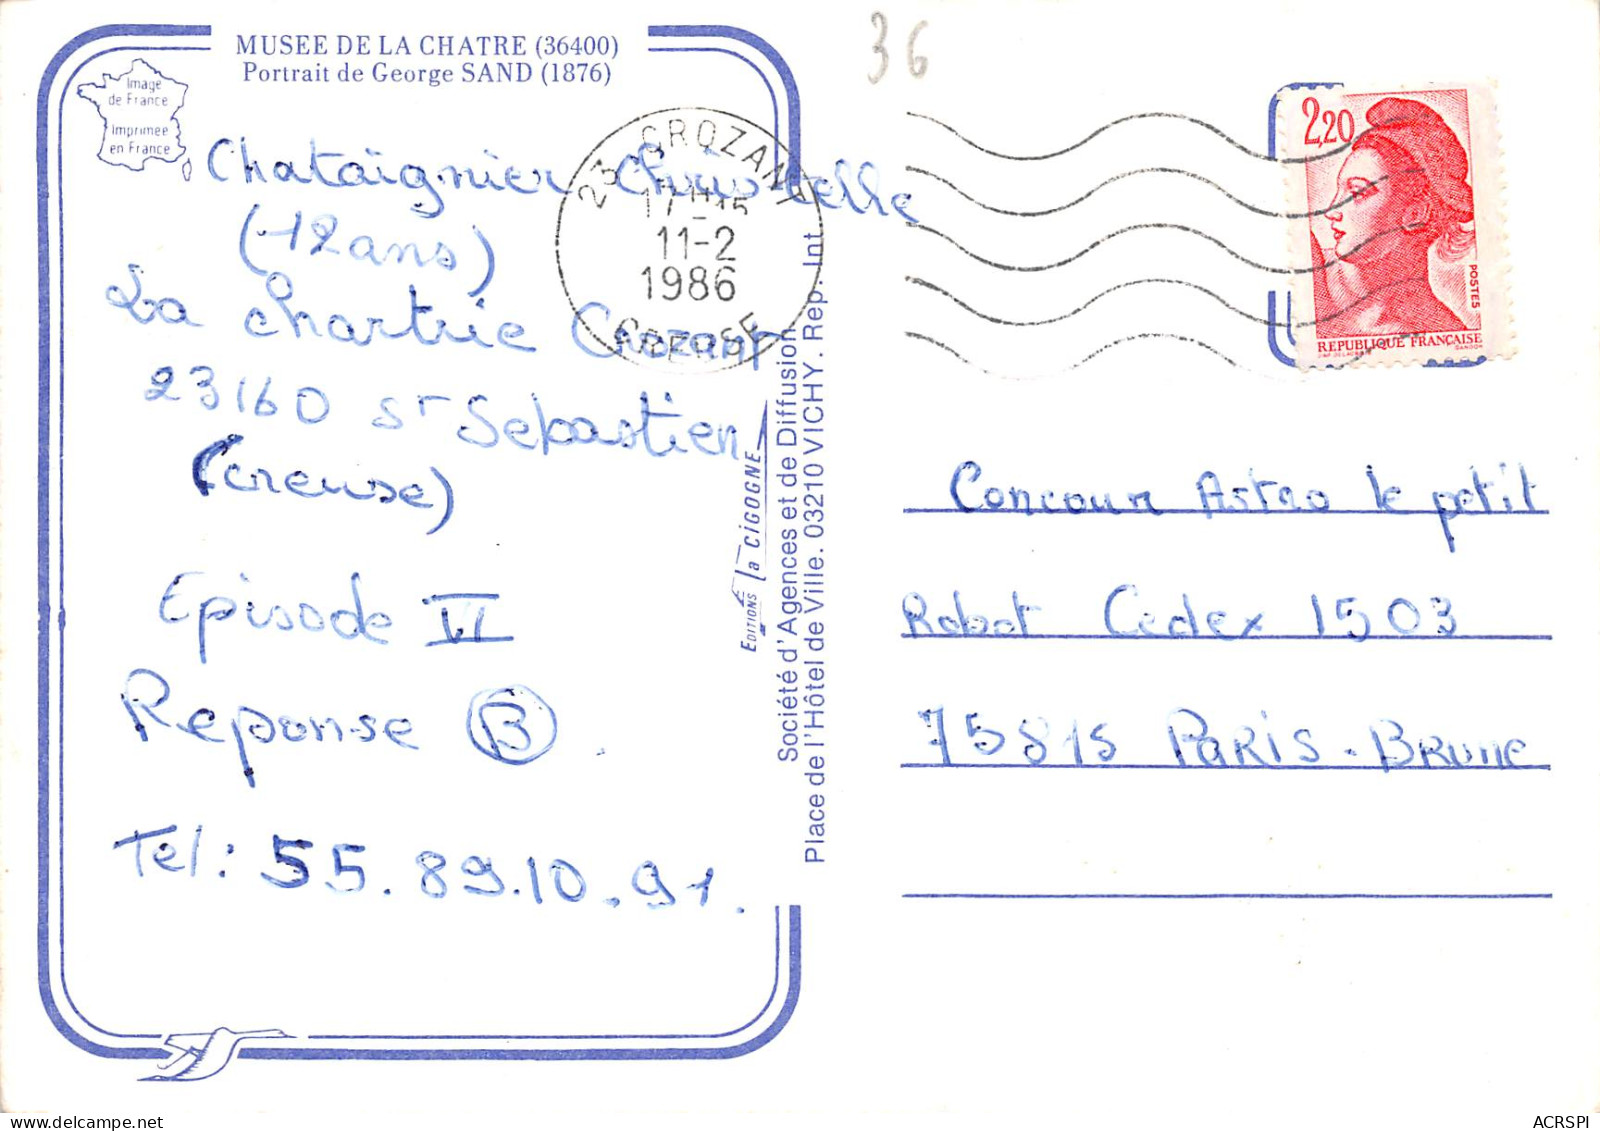 MUSEE DE LA CHATRE (36400)
Portrait de George SAND (1876)
Image
de France
Imprimée
en France
36
Chataignier Christelle
(12 ans)
La Chartrie Crozant
23160 St Sebastien
(creuse)
Episode VI
Reponse B.
Tel: 55.89.10.91.
23 CROZANT
11-2
1986
CREUSE
EDITIONS la CIGOGNE
Société d'Agences et de Diffusion
Place de l'Hôtel de Ville. 03210 VICHY. Rep. Int.
2,20
POSTES
REPUBLIQUE FRANÇAISE
GANDON
Concour Astro le petit
Robot Cedex 1503
75815 PARIS-BRUNE
ACRSPI